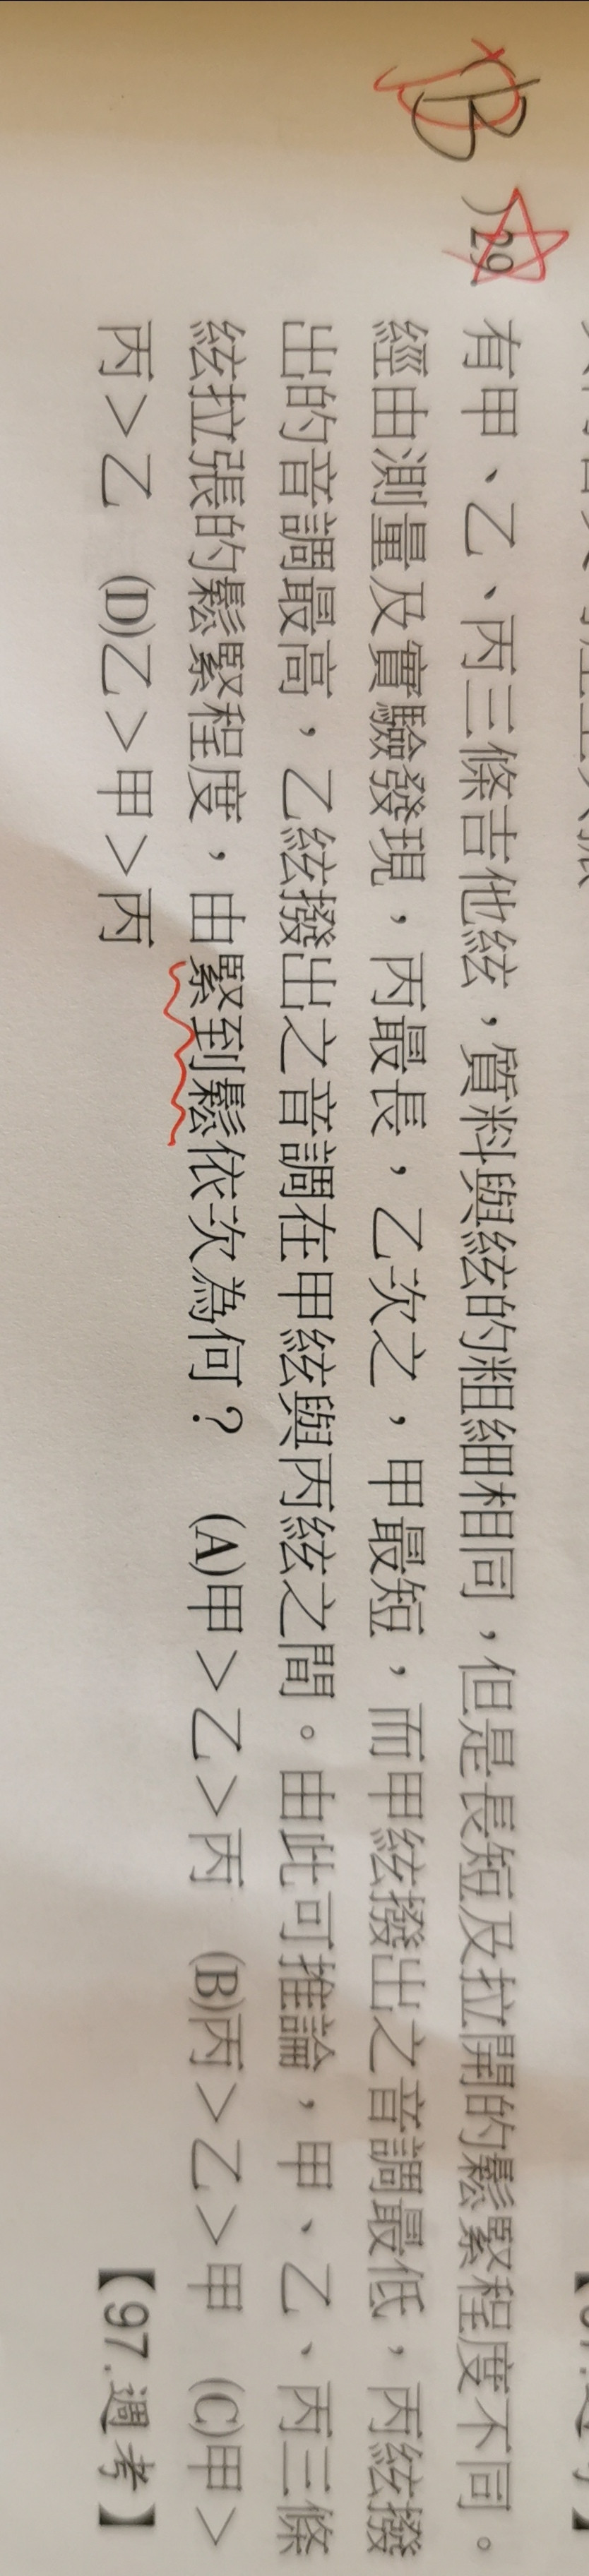 B )29. 有甲、乙、丙三條吉他絃，質料與絃的粗細相同，但是長短及拉開的鬆緊程度不同。
經由測量及實驗發現，丙最長，乙次之，甲最短，而甲絃撥出之音調最低，丙絃撥
出的音調最高，乙絃撥出之音調在甲絃與丙絃之間。由此可推論，甲、乙、丙三條
絃拉張的鬆緊程度，由緊到鬆依次為何？ (A)甲＞乙＞丙 (B)丙＞乙＞甲 (C)甲＞
丙＞乙 (D)乙＞甲＞丙 【97.週考】